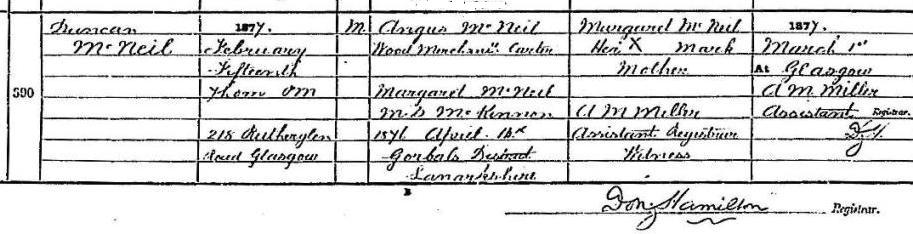 590
Duncan
McNeil
1877.
February
Fifteenth
7 hom PM
218 Rutherglen
Road Glasgow
M
Angus McNeil
Wood Merchant's Carter
Margaret McNeil
M.S McKinnon
1876 April
Gorbals District
Lanarkshire
Margaret McNeil
Her X Mark
Mother
A M Miller
Assistant Registrar
Witness
1877.
March 1st
At Glasgow
A M Miller
Assistant Registrar.
Hamilton Registrar.